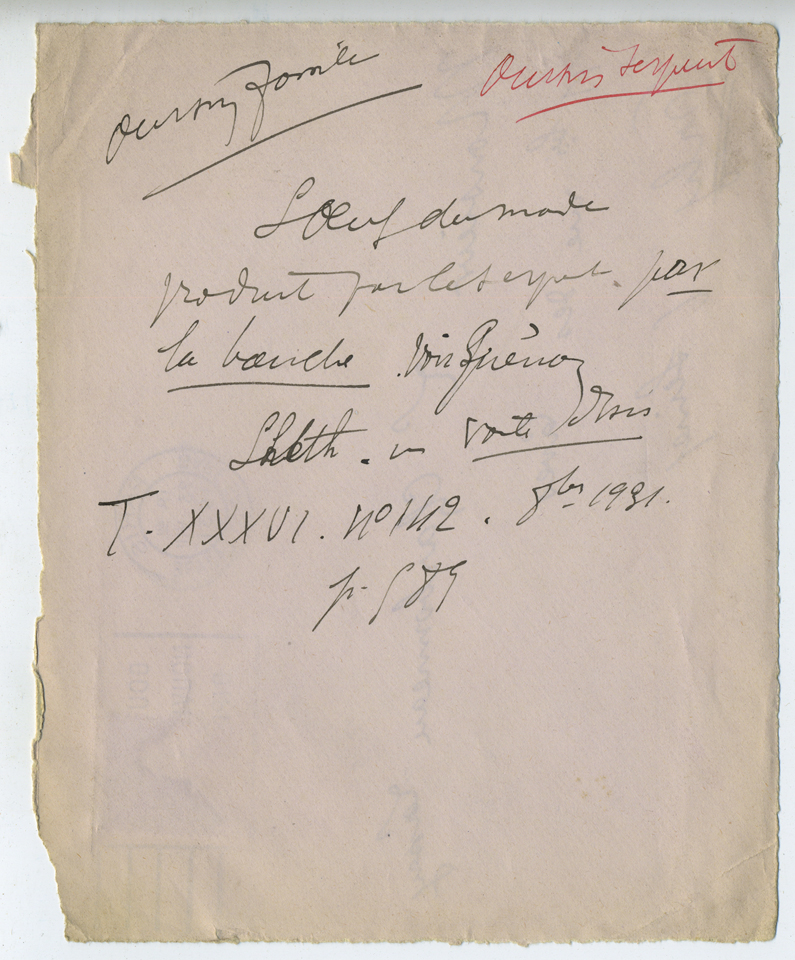 Oursin fossile
Oursin serpent
L'Œuf du monde
produit par le serpent. par
la bouche. Voir Guénon
Sheth. in Voile d'Isis
T. XXXVI. no 142. 8bre 1931.
p. 589